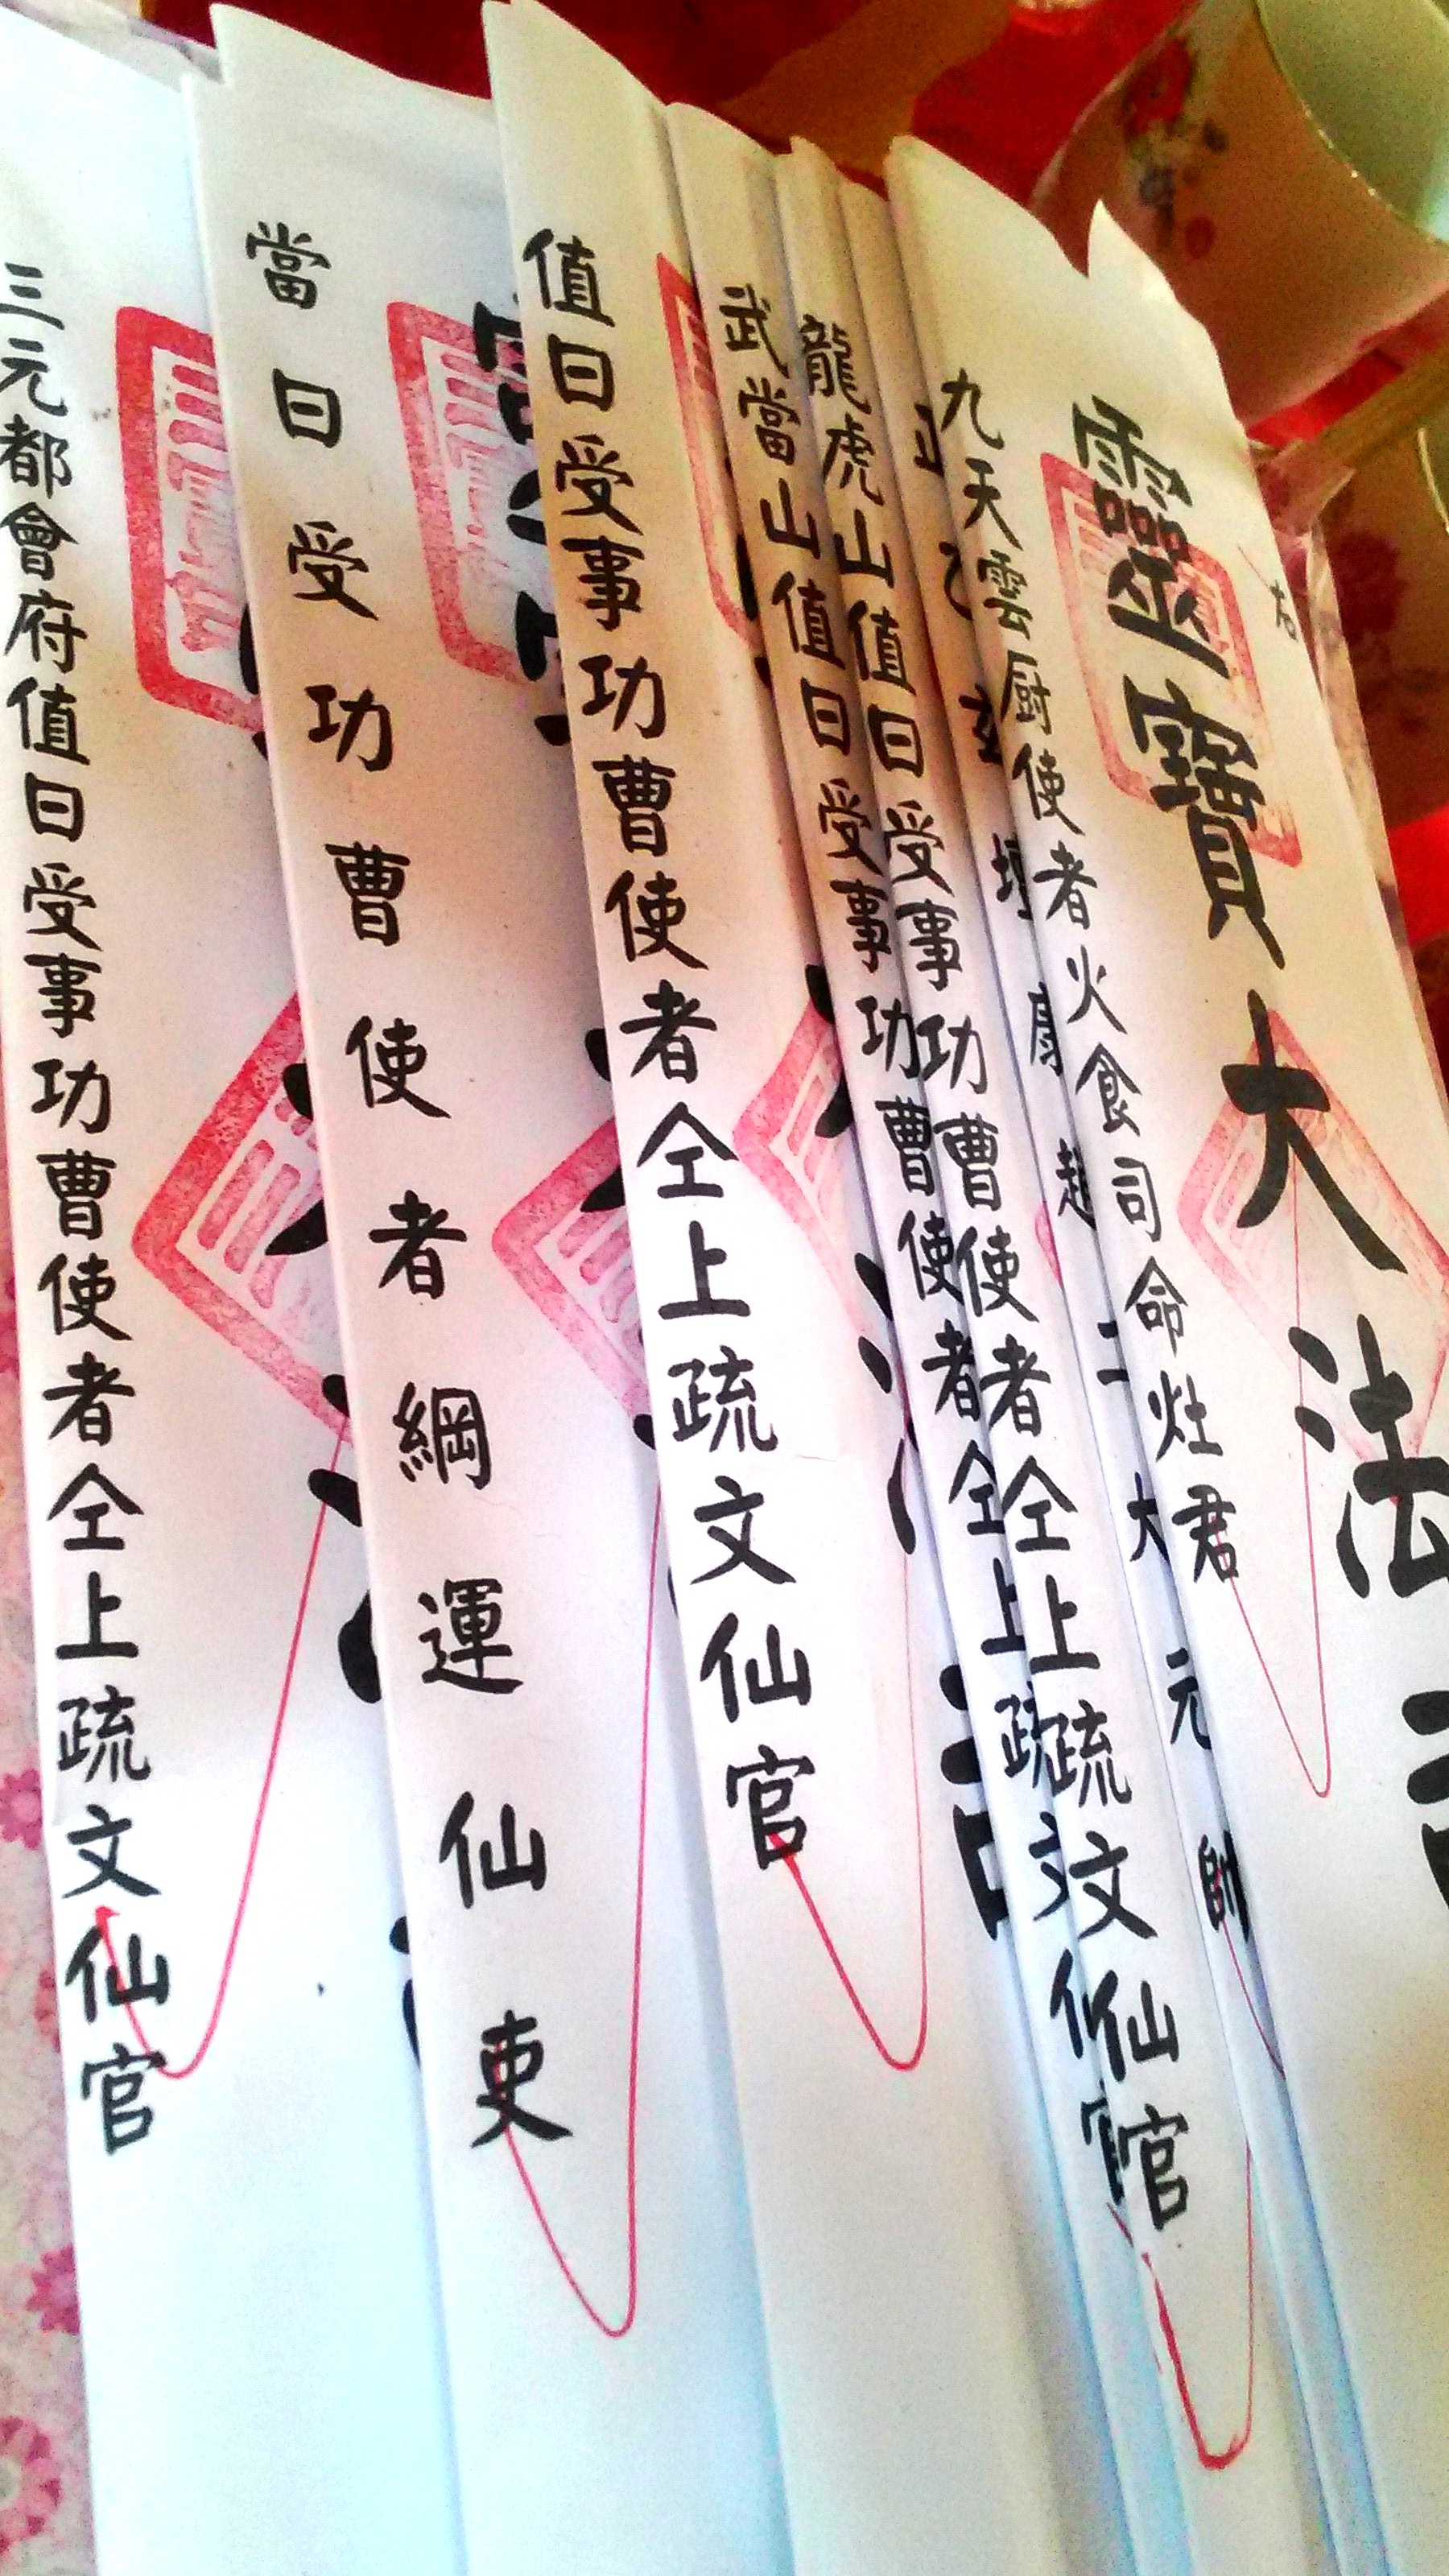 三元都會府值日受事功曹使者仝上疏文仙官
當日受功曹使者綱運仙吏
值日受事功曹使者仝上疏文仙官
武當山值日受事功曹使者仝上疏文仙官
龍虎山值日受事功曹使者仝上疏文仙官
正乙玄壇康趙二大元帥
九天雲厨使者火食司命灶君
靈寶大法司
右